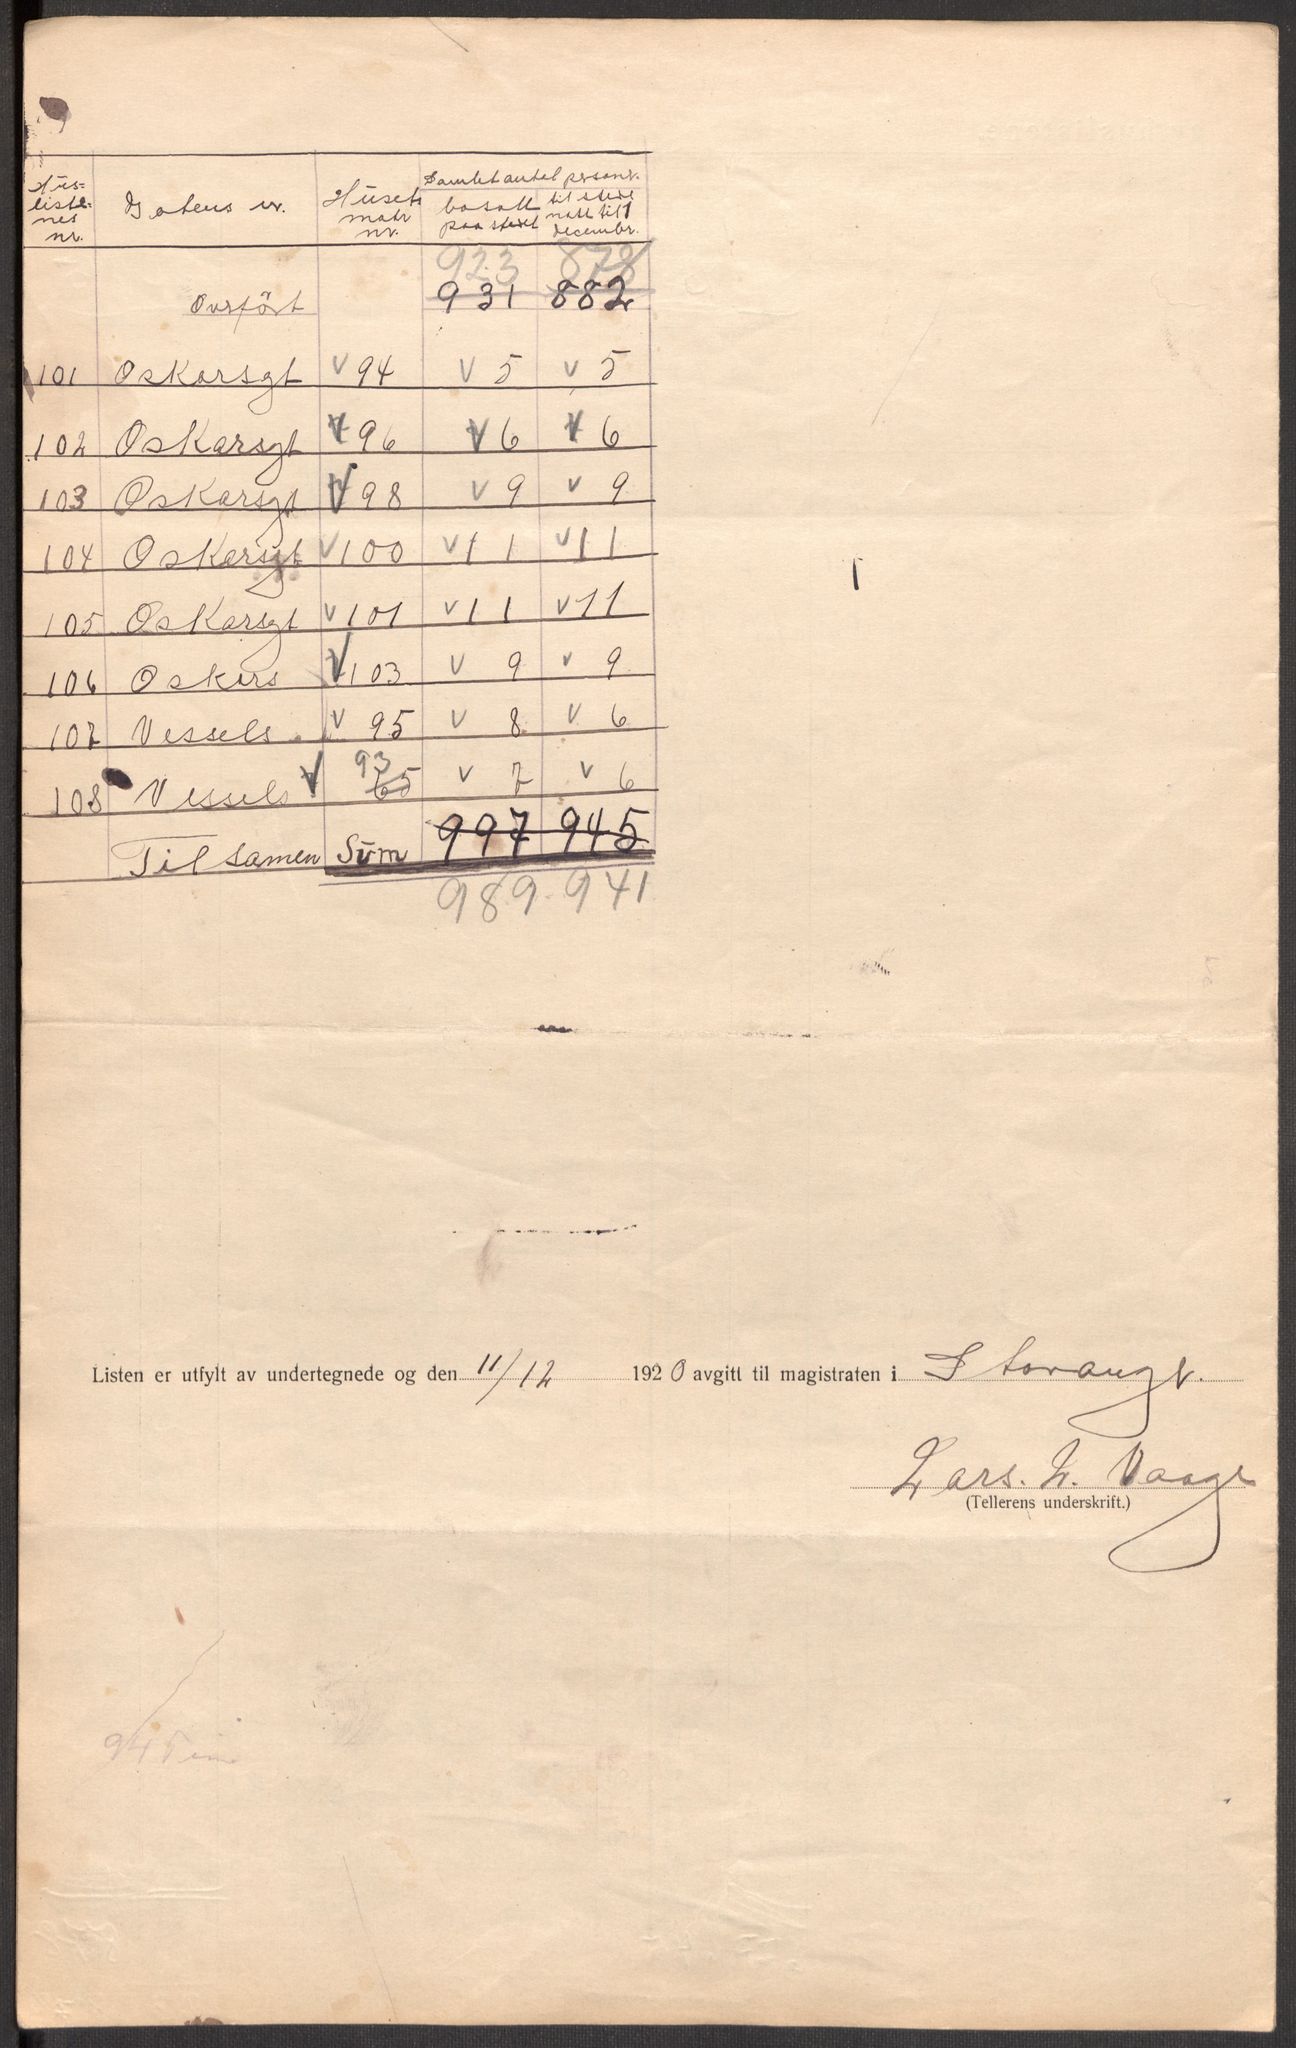 Hus-
liste-
nes
nr. Gatens nr. Husets
matr
nr. Samlet antal person.
bosatt
paa stedet til stede
natt til 1
decembr.
923 878
Overført 931 882
101 Oskarsgt v 94 v 5 v 5
102 Oskarsgt v 96 v 6 v 6
103 Oskarsgt v 98 v 9 v 9
104 Oskarsgt v 100 v 11 v 11
105 Oskarsgt v 101 v 11 v 11
106 Oskars v 103 v 9 v 9
107 Vessels v 95 v 8 v 6
93
108 Vessels v 65 v 7 v 6
Til samen Sum 997 945
989 941
Listen er utfylt av undertegnede og den 11/12 1920 avgitt til magistraten i Stavanger.
Lars. L. Vaage
(Tellerens underskrift.)